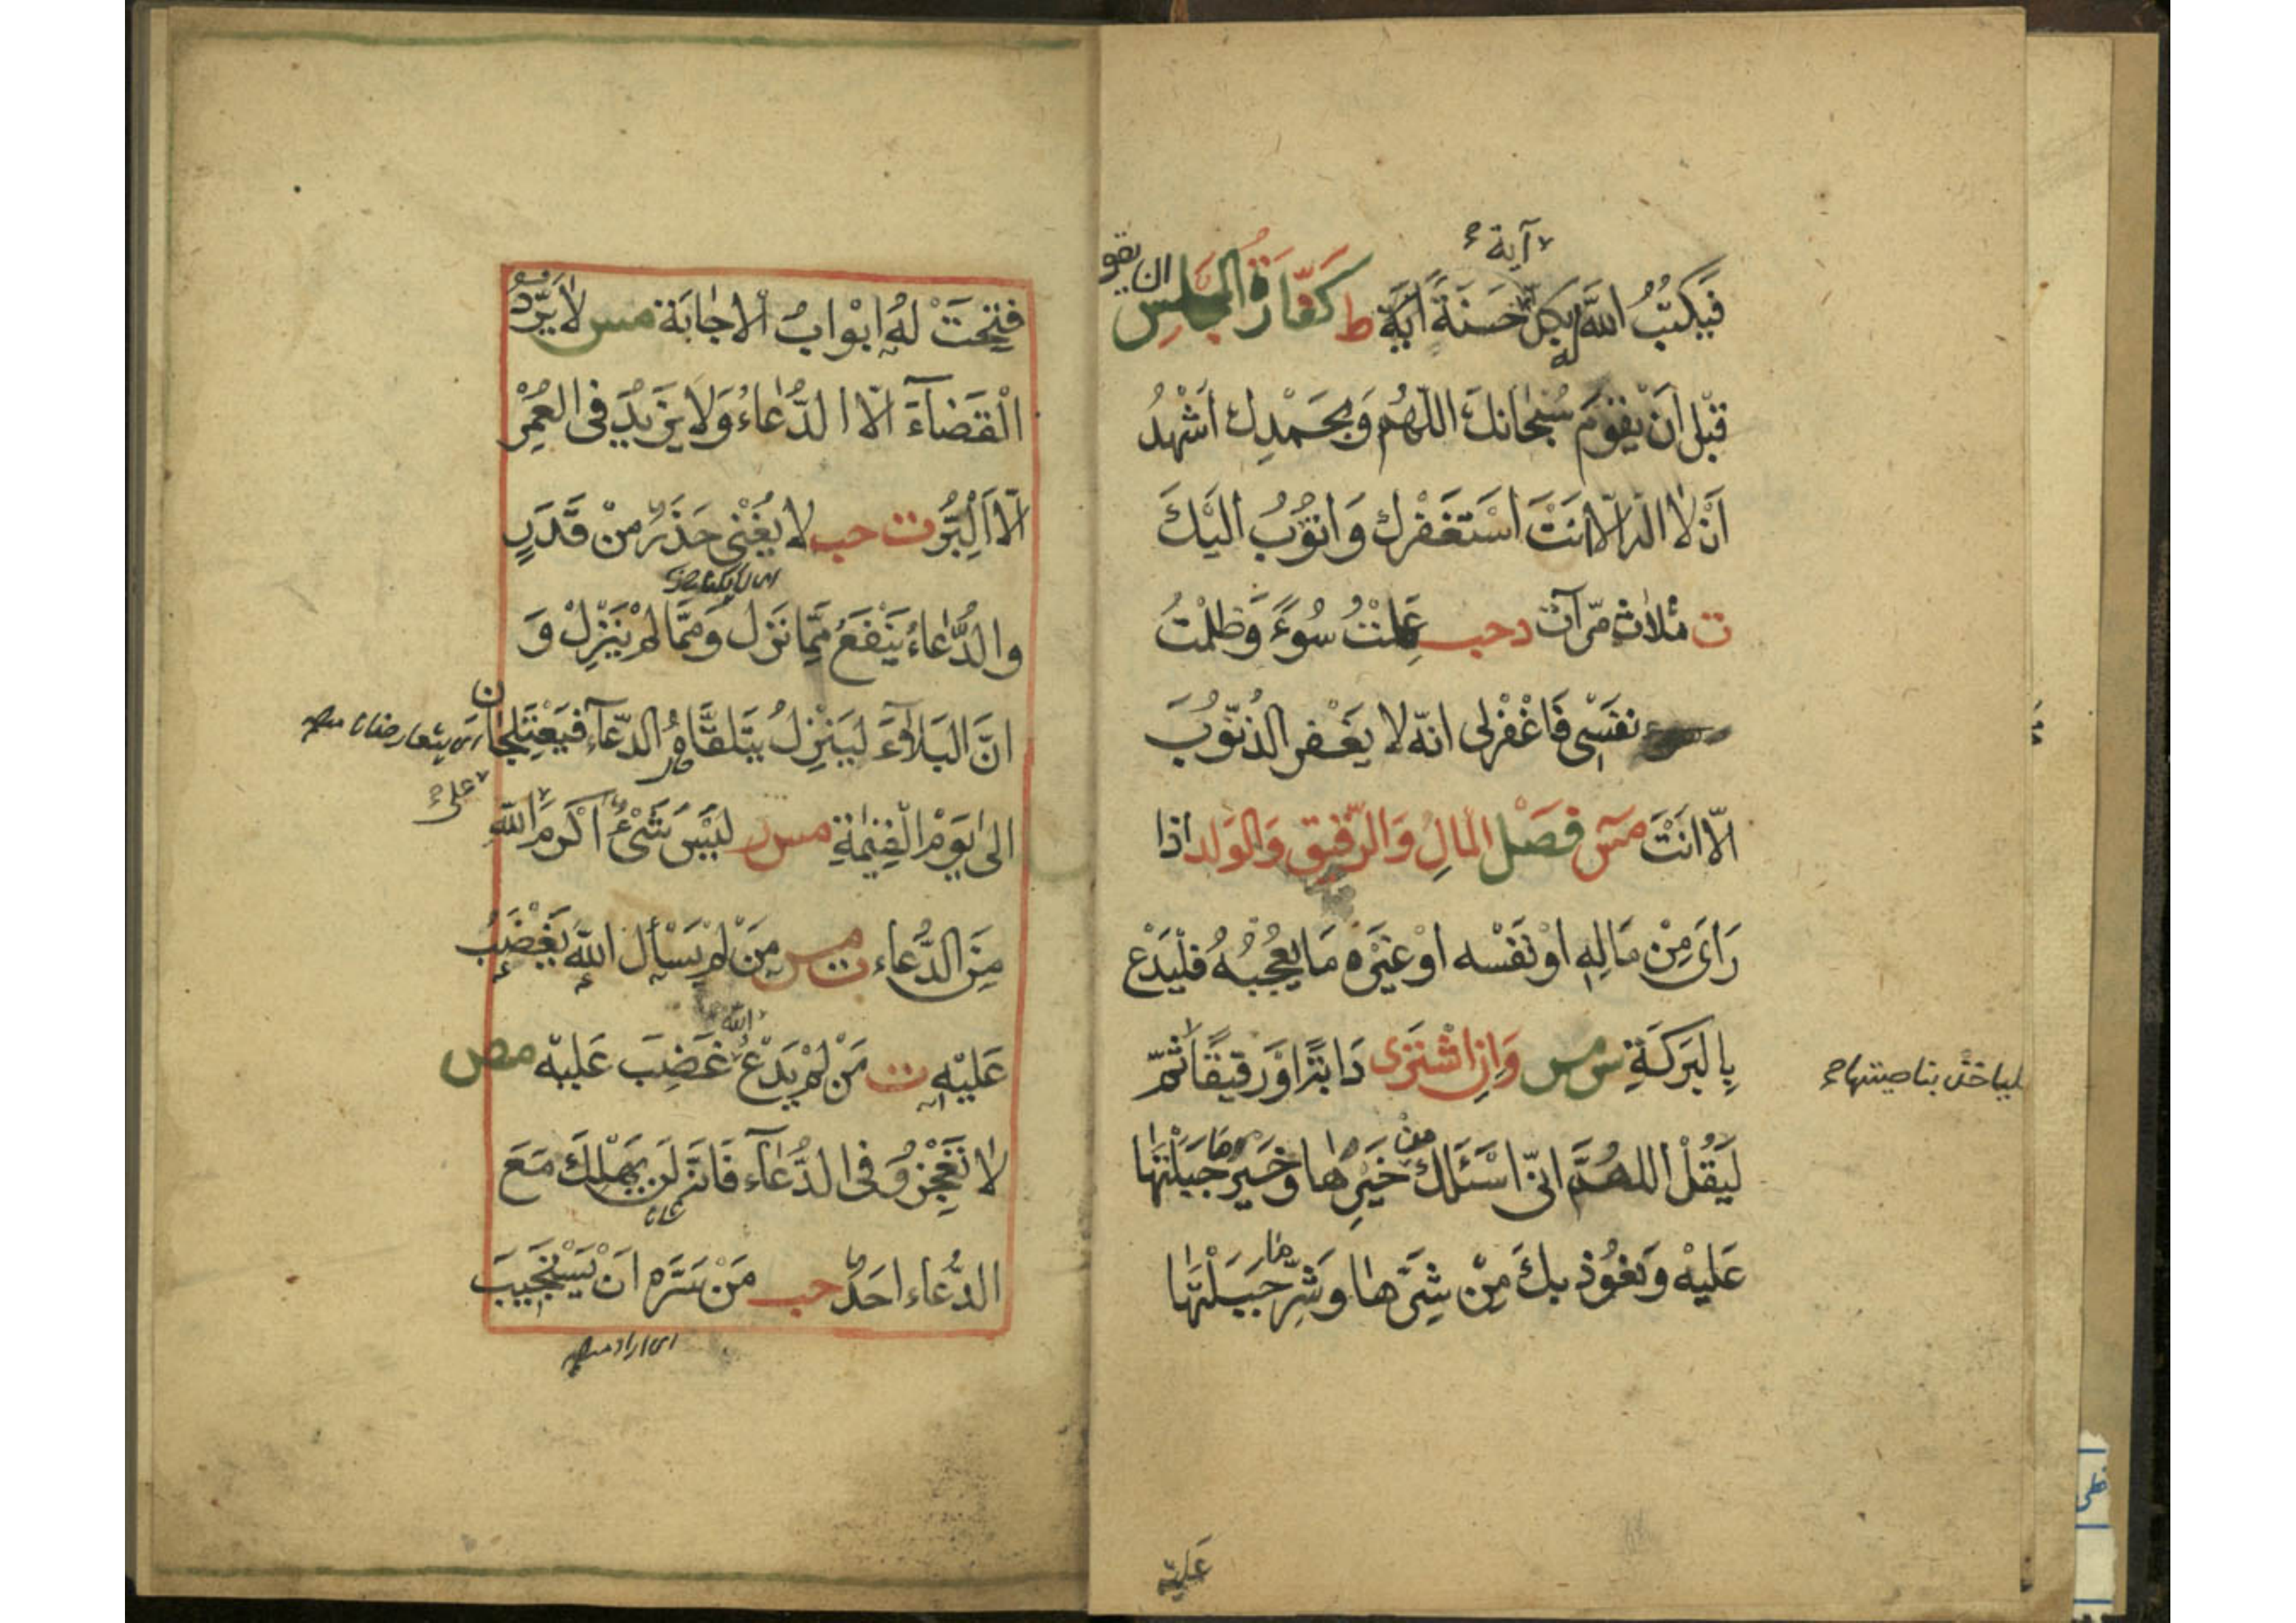 آية
فَيَكْتُبُ اللّٰهُ لَهُ بِكُلِّ حَسَنَةً اٰيَةً ط كَفَّارَةُ الْمَجْلِسِ ان يقو
قَبْلَ اَنْ يَقُوْمَ سُبْحَانَكَ اللّٰهُمَّ وَبِحَمْدِكَ اَشْهَدُ
اَنْ لَا اِلٰهَ اِلَّا اَنْتَ اَسْتَغْفِرُكَ وَاَتُوْبُ اِلَيْكَ
ت ثَلَاثَ مَرَّاتٍ د حب عَمِلْتُ سُوْءً وَظَلَمْتُ
نَفْسِىْ فَاغْفِرْلِى اِنَّهُ لَا يَغْفِرُ الذُّنُوْبَ
اِلَّا اَنْتَ مس فَصْل الْمَالِ وَالرَّقِيْقِ وَالْوَلَدِ اذا
رَاٰى مِنْ مَالِهٖ اَوْ نَفْسِهِ اَوْ غَيْرِهٖ مَا يُعْجِبُهُ فَلْيَدْعُ
بِالْبَرَكَةِ س مس وَاِنِ اشْتَرٰى دَابَّةً اَوْ رَقِيْقًا ثُمَّ
لياخذ بناصيتها
لِيَقُلْ اَللّٰهُمَّ اِنِّىْ اَسْئَلُكَ من خَيْرِهَا وَخَيْرِ مَا جَبَلْتَهَا
عَلَيْهِ وَنَعُوْذُ بِكَ مِنْ شَرِّهَا وَشَرِّ مَا جَبَلْتَهَا
عَلَيْهِ
فُتِحَتْ لَهُ اَبْوَابُ الْاِجَابَة مس لَا يَرُدُّ
الْقَضَآءَ اِلَّا الدُّعَاءُ وَلَا يَزِيْدُ فِى الْعُمْرِ
اِلَّا الْبِرُّ ت حب لَا يُغْنِىْ حَذَرٌ مِنْ قَدَرٍ
وَالدُّعَاءُ يَنْفَعُ مِمَّا نَزَلَ وَمِمَّا لَمْ يَنْزِلْ وَ
اِنَّ الْبَلَآءَ لَيَنْزِلُ يَتَلَقَّاهُ الدُّعَآءُ فَيَعْتَلِجَانِ
اى يتعارضان
اِلٰى يَوْمِ الْقِيٰمَةِ مس ر لَيْسَ شَىْءٌ اَكْرَمَ اللّٰهِ
على
مِنَ الدُّعَاء ت مس مَنْ لَمْ يَسْاَلِ اللّٰهَ يَغْضَبْ
عَلَيْهِ ت مَنْ لَمْ يَدْعُ الله غَضِبَ عَلَيْهِ مص
لَا تَعْجِزُوْ فِى الدُّعَآءِ فَاِنَّهُ لَنْ يَهْلِكَ مَعَ
الدُّعَاءِ اَحَدٌ حب مَنْ سَرَّهُ اَنْ يَسْتَجِيْبَ
اى اراد